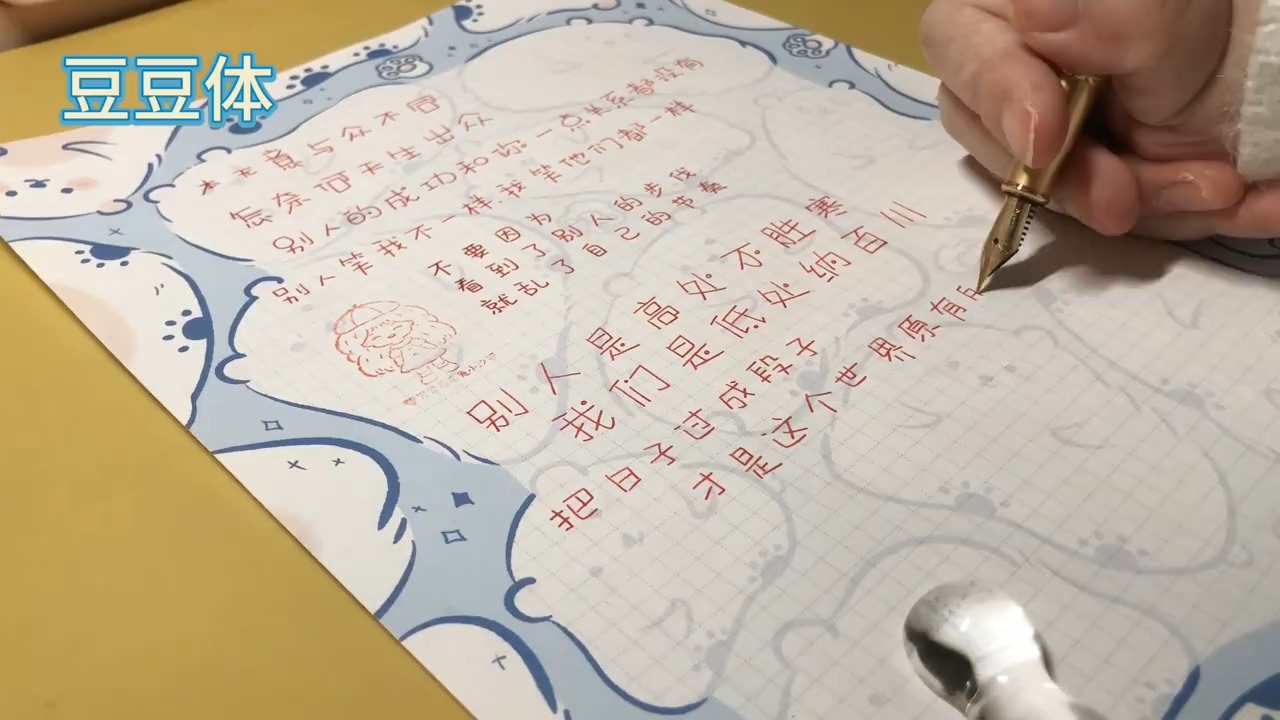 豆豆体
本无意与众不同
怎奈何天生出众
别人的成功和你一点关系都没有
别人笑我不一样,我笑他们都一样
不要因为
看到了别人的步伐
就乱了自己的节奏
别人是高处不胜寒
我们是低处纳百川
把日子过成段子
才是这个世界原有